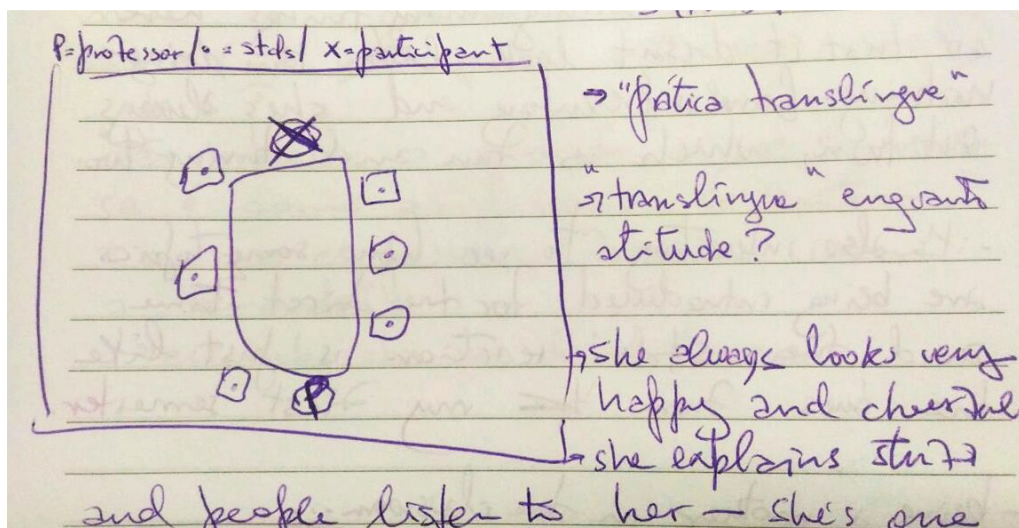 P=professor/ • = stds/ X=participant
→ "prática translíngue"
→ "translíngue" enquanto
atitude?
→ she always looks very
happy and cheerful
→ she explains stuff
and people listen to her — she's one